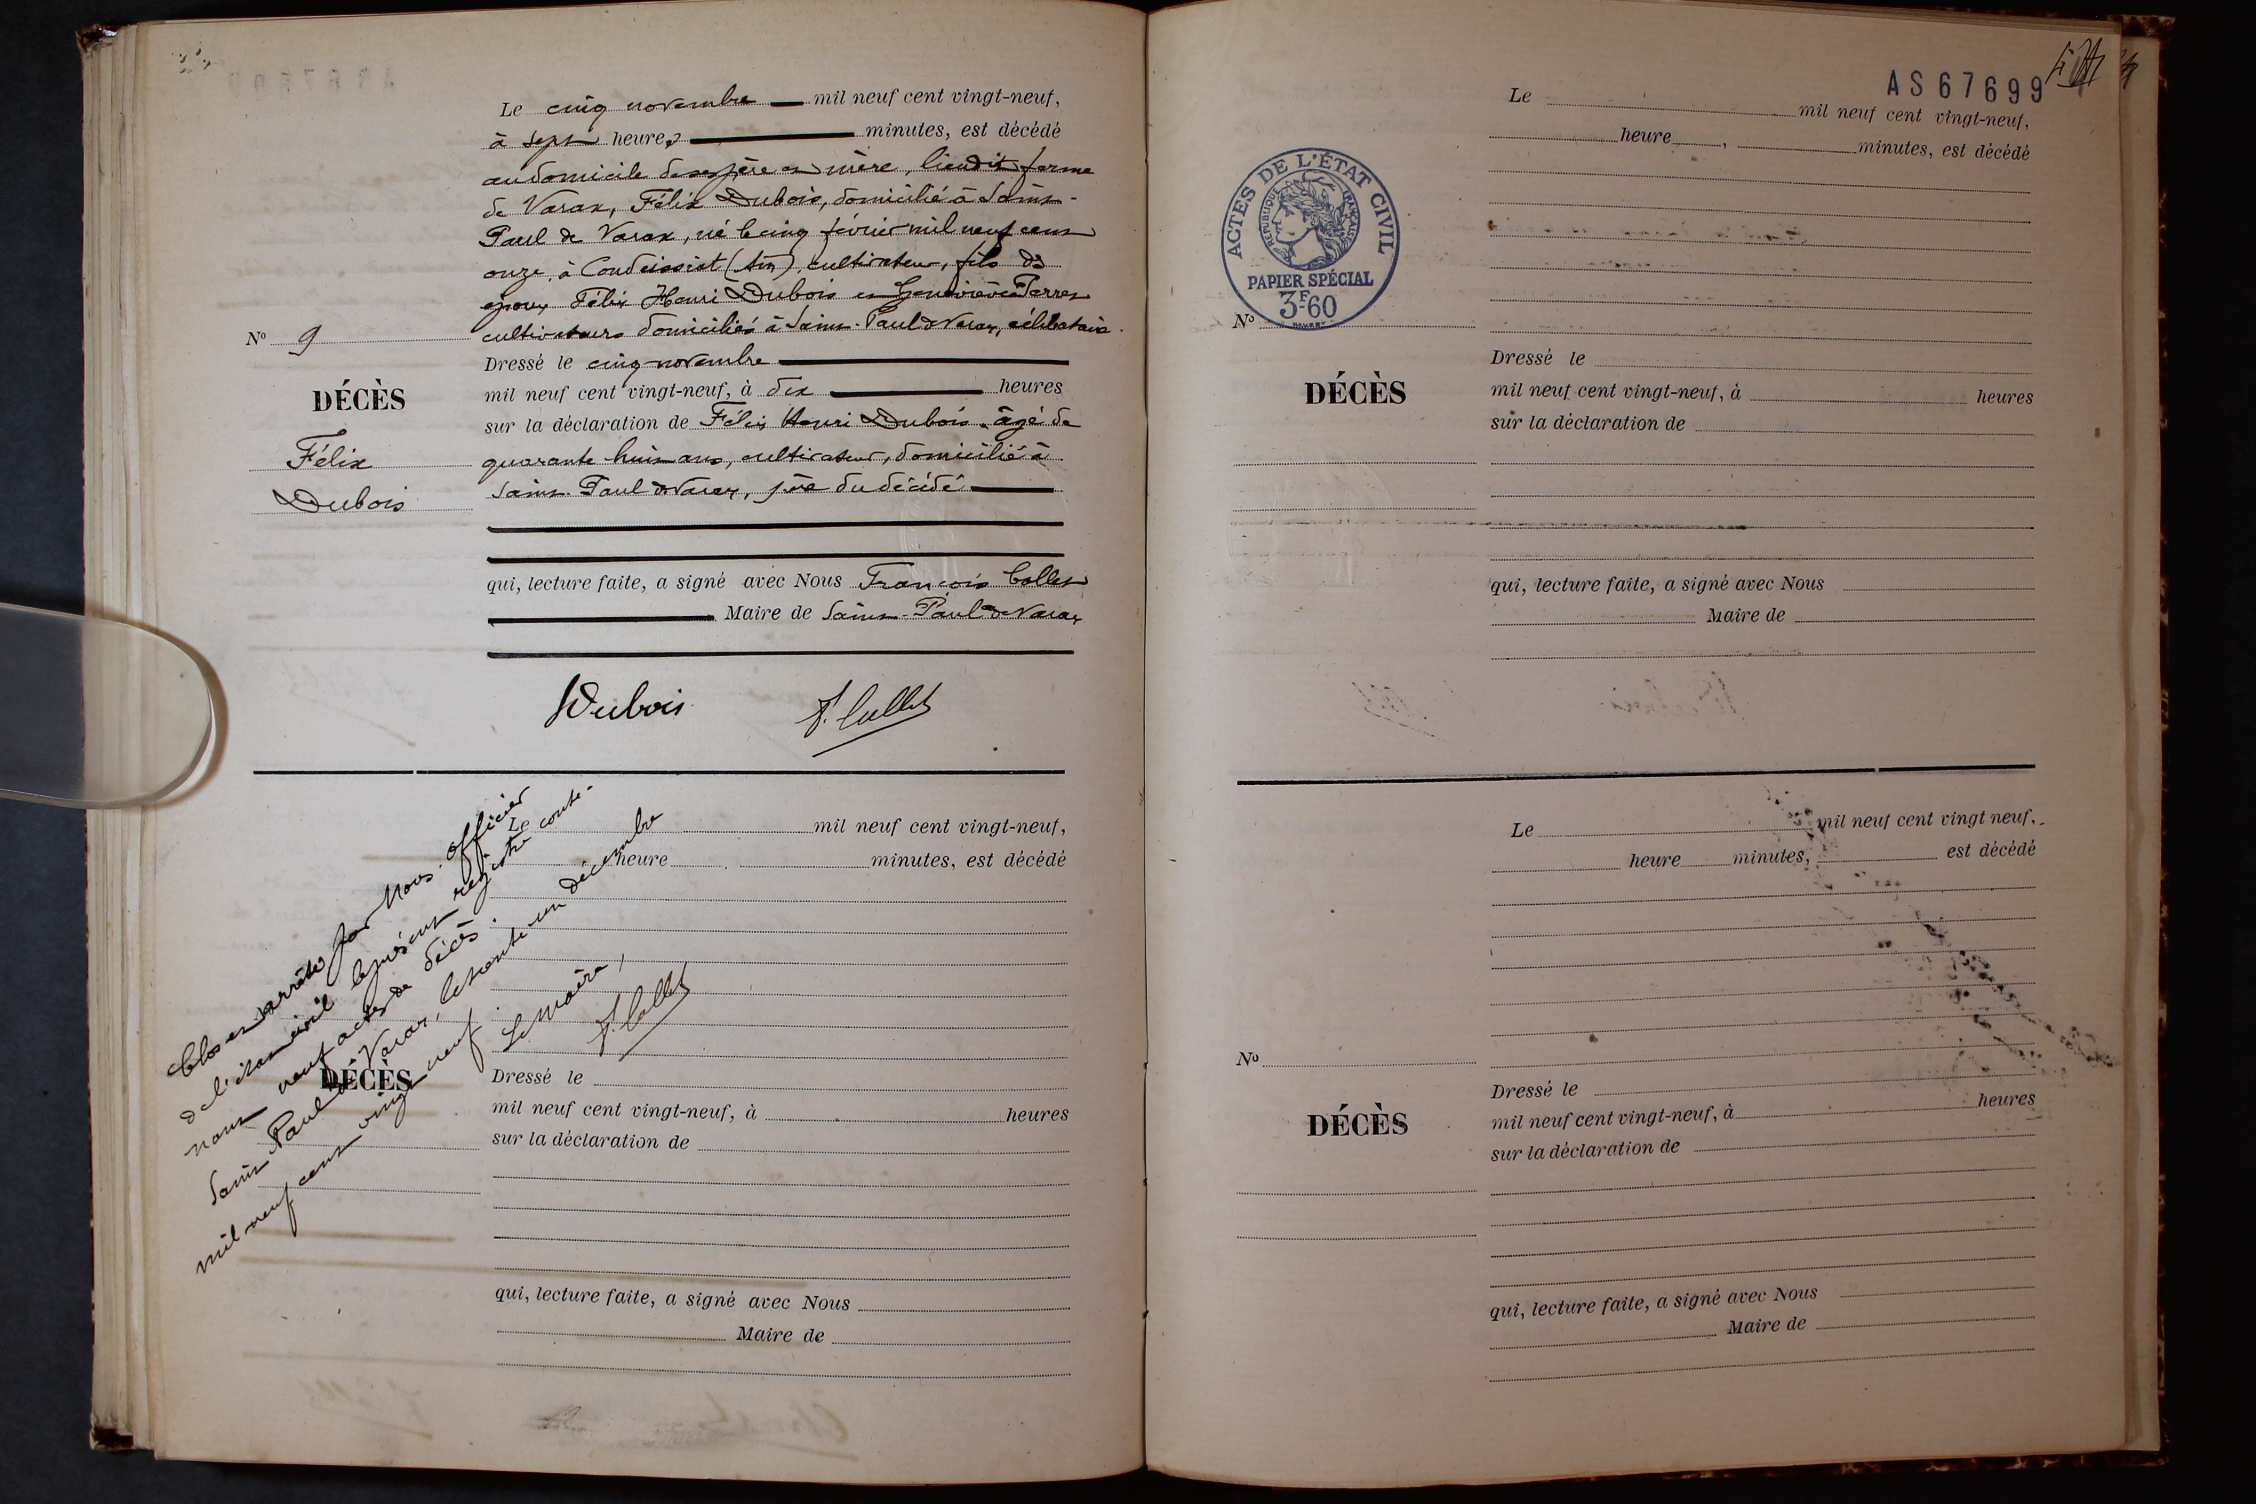 Le cinq novembre mil neuf cent vingt-neuf,
à sept heures minutes, est décédé
au domicile de ses père et mère, lieudit ferme
de Varax, Félix Dubois, domicilié à Saint-
Paul de Varax, né le cinq février mil neuf cent
onze, à Condeissiat (Ain), cultivateur, fils de
époux Félix Henri Dubois et Geneviève Perret
cultivateurs domiciliés à Saint-Paul de Varax, célibataire.
Dressé le cinq novembre
mil neuf cent vingt-neuf, à dix heures
sur la déclaration de Félix Henri Dubois, âgé de
quarante huit ans, cultivateur, domicilié à
Saint-Paul de Varax, père du décédé
qui, lecture faite, a signé avec Nous François Collet
Maire de Saint-Paul de Varax
Nº 9
DÉCÈS
Félix
Dubois
Dubois
F. Collet
Le mil neuf cent vingt-neuf,
heure minutes, est décédé
DÉCÈS
Dressé le
mil neuf cent vingt-neuf, à heures
sur la déclaration de
qui, lecture faite, a signé avec Nous
Maire de
Clos et arrêté par Nous officier
de l'état civil le présent registre conte-
nant neuf actes de décès.
Saint Paul de Varax, le trente un décembre
mil neuf cent vingt neuf.
Le Maire,
F. Collet
AS67699
ACTES DE L'ÉTAT CIVIL
RÉPUBLIQUE FRANÇAISE
PAPIER SPÉCIAL
3F60
Le mil neuf cent vingt-neuf,
heure, minutes, est décédé
Nº
DÉCÈS
Dressé le
mil neuf cent vingt-neuf, à heures
sur la déclaration de
qui, lecture faite, a signé avec Nous
Maire de
Le mil neuf cent vingt neuf,
heure minutes, est décédé
Nº
DÉCÈS
Dressé le
mil neuf cent vingt-neuf, à heures
sur la déclaration de
qui, lecture faite, a signé avec Nous
Maire de